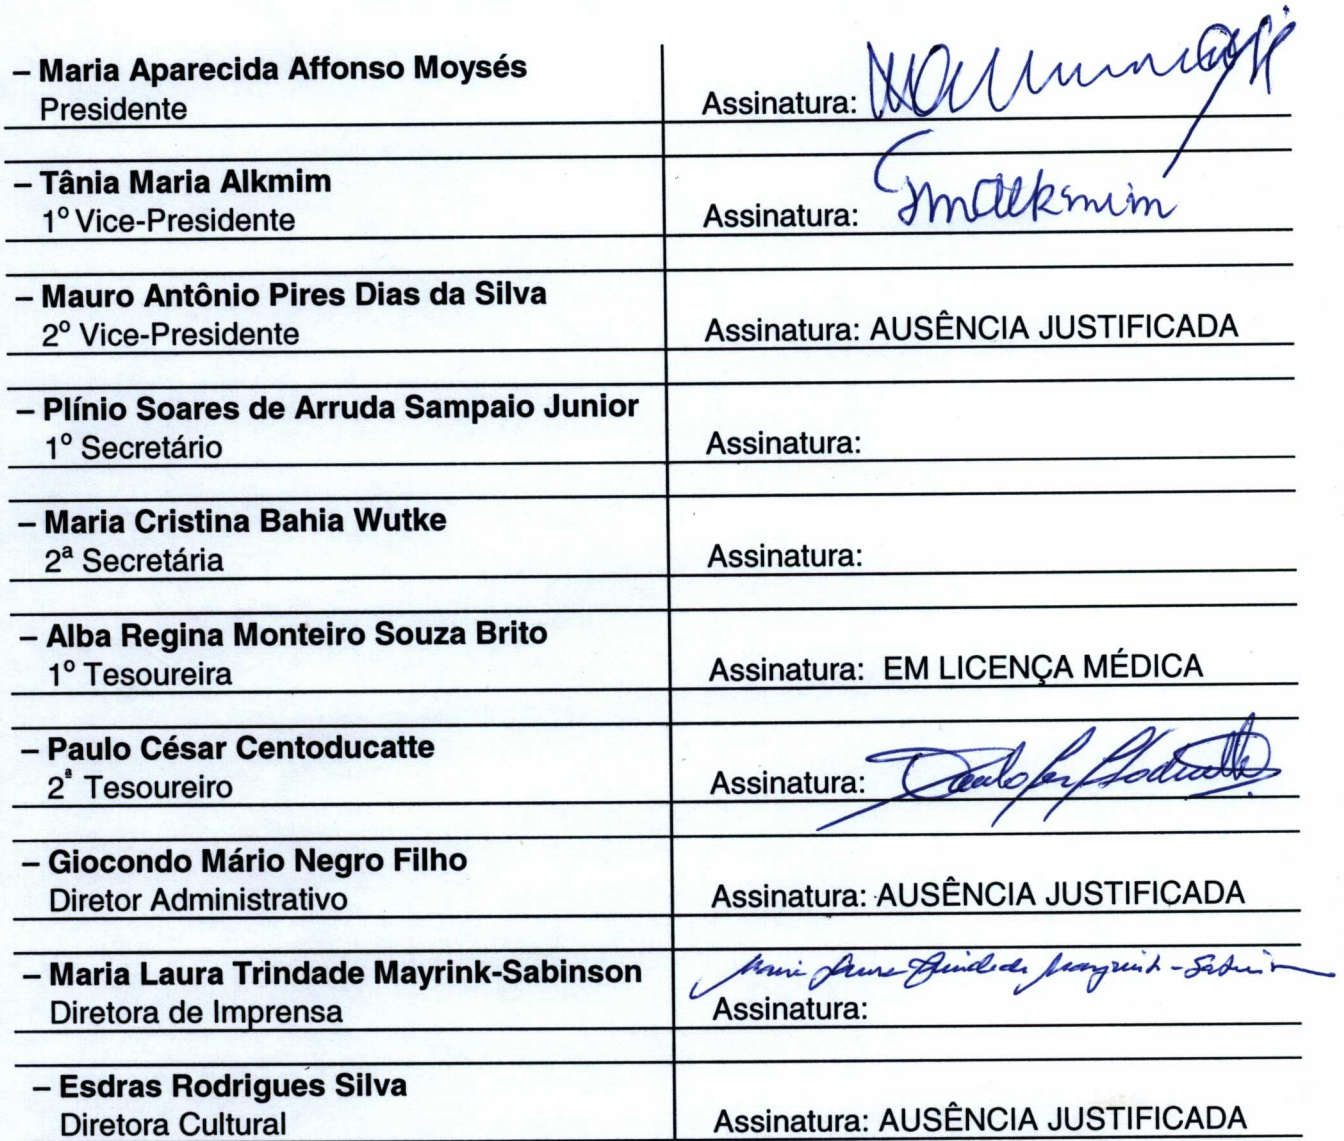 – Maria Aparecida Affonso Moysés
Presidente
Assinatura:
– Tânia Maria Alkmim
1º Vice-Presidente
Assinatura: TMAlkmim
– Mauro Antônio Pires Dias da Silva
2º Vice-Presidente
Assinatura: AUSÊNCIA JUSTIFICADA
– Plínio Soares de Arruda Sampaio Junior
1º Secretário
Assinatura:
– Maria Cristina Bahia Wutke
2ª Secretária
Assinatura:
– Alba Regina Monteiro Souza Brito
1º Tesoureira
Assinatura: EM LICENÇA MÉDICA
– Paulo César Centoducatte
2ª Tesoureiro
Assinatura:
– Giocondo Mário Negro Filho
Diretor Administrativo
Assinatura: AUSÊNCIA JUSTIFICADA
– Maria Laura Trindade Mayrink-Sabinson
Diretora de Imprensa
Maria Laura Trindade Mayrink-Sabinson
Assinatura:
– Esdras Rodrigues Silva
Diretora Cultural
Assinatura: AUSÊNCIA JUSTIFICADA